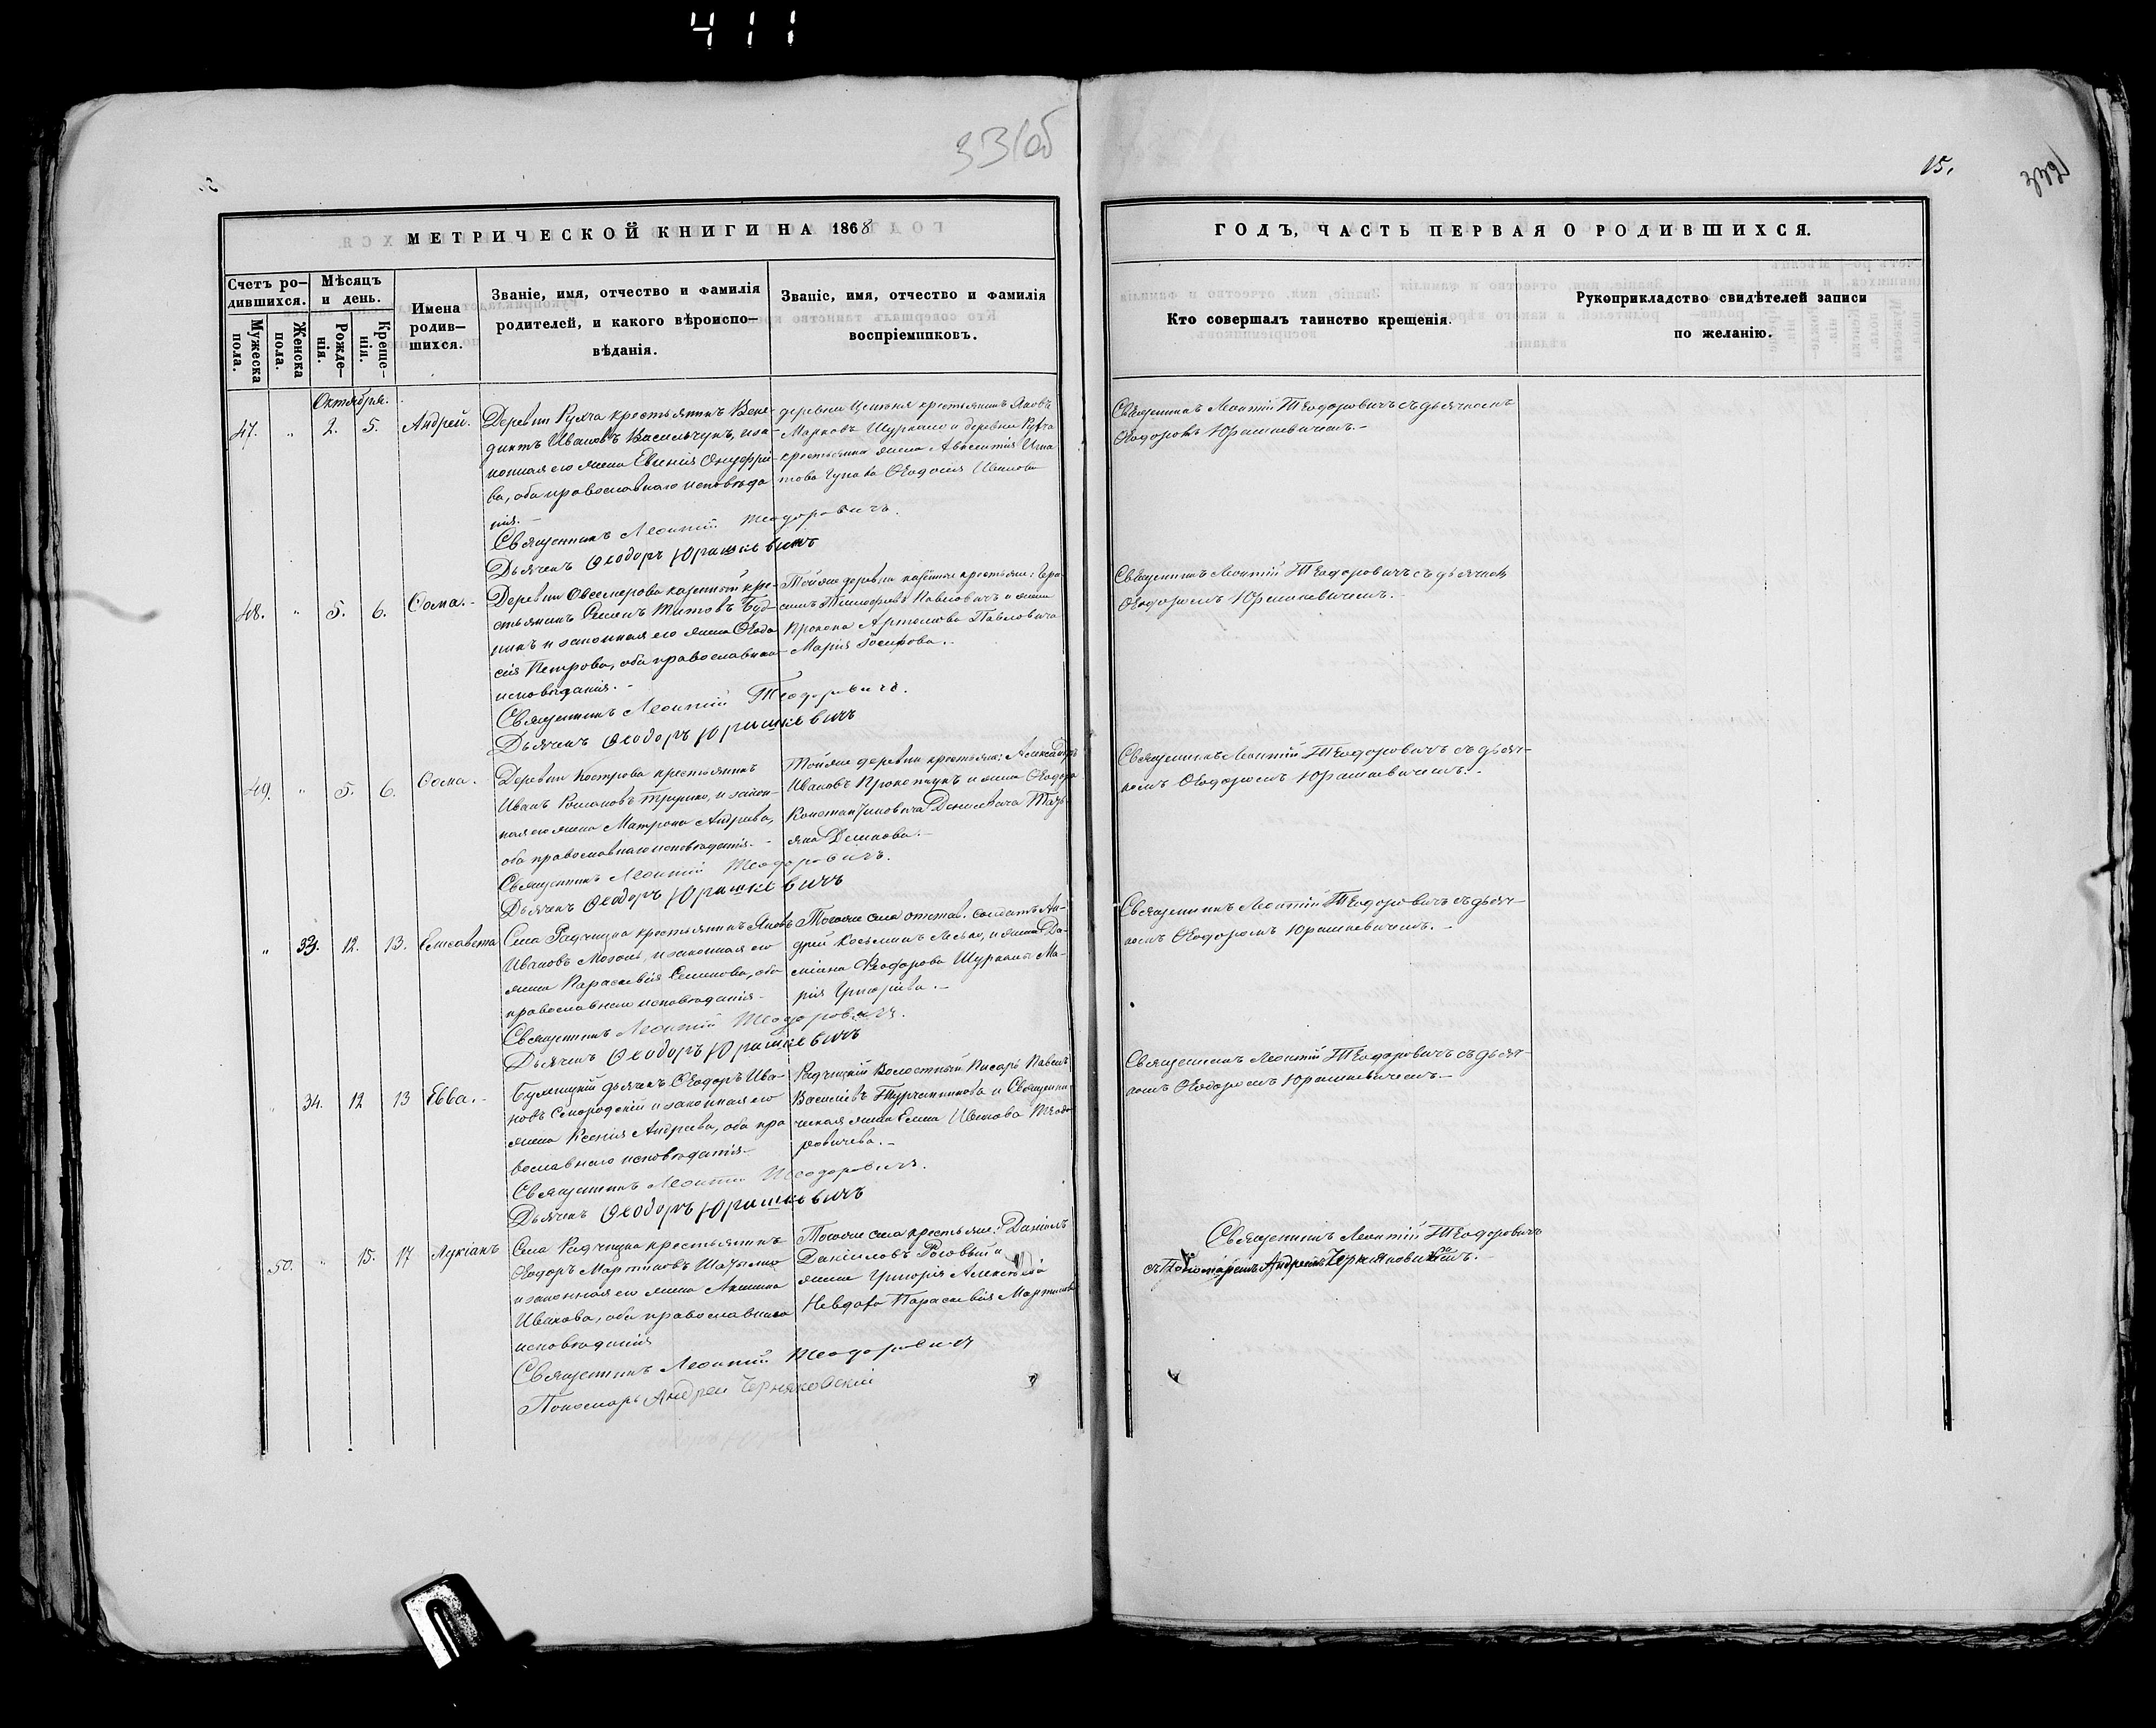 411
331об
15.
332
МЕТРИЧЕСКОЙ КНИГИ НА 1868
ГОДЪ, ЧАСТЬ ПЕРВАЯ О РОДИВШИХСЯ.
Счетъ ро-
дившихся.
Мужеска
пола.
Женска
пола.
Мѣсяцъ
и день.
Рожде-
нія.
Креще-
нія.
Имена
родив-
шихся.
Званіе, имя, отчество и фамилія
родителей, и какого вѣроиспо-
вѣданія.
Званіе, имя, отчество и фамилія
воспріемниковъ.
Кто совершалъ таинство крещенія.
Рукоприкладство свидѣтелей записи
по желанію.
Октября.
47. " 2. 5. Андрей.
Деревни Рухча крестьянинъ Вене-
диктъ Ивановъ Васильчукъ, и за-
конная его жена Евгенія Онуфріе-
ва, оба православнаго исповѣда
нія.-
Священникъ Леонтій Теодоровичъ.
Дьячекъ Ѳеодоръ Юрашкевичъ
деревни крестьянинъ Яковъ
Марковъ и деревни Рухча
крестьянина жена Игна
това Ѳеодосія Иванова
Священникъ Леонтій Теодоровичъ съ дьячкомъ
Ѳеодоромъ Юрашкевичемъ.-
48. " 5. 6. Ѳома.-
Деревни Овсемирова казенный кре-
стьянинъ Семенъ Титовъ Буд-
никъ и законная его жена Ѳеодо
сія Петрова, оба православнаго
исповѣданія.-
Священникъ Леонтій Теодоровичъ.
Дьячекъ Ѳеодоръ Юрашкевичъ
Тойже деревни казенные крестьяне: Гера-
симъ Тимофеевъ Павловичъ и жена
Прокопа Артемова Павловича
Марія Іосифова.-
Священникъ Леонтій Теодоровичъ съ дьячкомъ
Ѳеодоромъ Юрашкевичемъ.-
49. " 5. 6. Ѳома.
Деревни Кострова крестьянинъ
Иванъ Романовъ и закон-
ная его жена Матрона Андреева,
оба православнаго исповѣданія.-
Священникъ Леонтій Теодоровичъ.
Дьячекъ Ѳеодоръ Юрашкевичъ
Тойже деревни крестьяне: Александръ
Ивановъ Прокопчукъ и жена Ѳеодора
Константиновича Денисевича Тать-
яна Демкова.-
Священникъ Леонтій Теодоровичъ съ дьяч-
комъ Ѳеодоромъ Юрашкевичемъ.-
" 33. 12. 13. Елисавета
Села Радчицка крестьянинъ Яковъ
Ивановъ Мозоль, и законная его
жена Параскевія Семенова, оба
православнаго исповѣданія-
Священникъ Леонтій Теодоровичъ.
Дьячекъ Ѳеодоръ Юрашкевичъ
Тогоже села отстав. солдатъ Ан-
дрей Косьминъ Лесько, и жена Да-
міана Ѳеодорова Ма-
рія Григорьева.-
Священникъ Леонтій Теодоровичъ съ дьяч-
комъ Ѳеодоромъ Юрашкевичемъ.-
" 34. 12 13 Евва.-
дьячекъ Ѳеодоръ Ива-
новъ Смородскій и законная его
жена Ксенія Андреева, оба пра
вославнаго исповѣданія-
Священникъ Леонтій Теодоровичъ.
Дьячекъ Ѳеодоръ Юрашкевичъ
Радчицкій Волостный Писарь Павелъ
Васильевъ и Священни-
ческая жена Елена Иванова Теодо
ровичева.-
Священникъ Леонтій Теодоровичъ съ дьяч-
комъ Ѳеодоромъ Юрашкевичемъ.-
50. " 15. 17 Лукіанъ
Села Радчицка крестьянинъ
Ѳеодоръ Мартиновъ
и законная его жена Акилина
Иванова, оба православнаго
исповѣданія
Священникъ Леонтій Теодоровичъ
Пономарь Андрей Черняковскій
Тогоже села крестьяне: Даніилъ
Данииловъ Роговый и
жена Григорія Алексѣева
Невдаха Параскевія Мартинова
Священникъ Леонтій Теодоровичъ
съ Пономаремъ Андреемъ